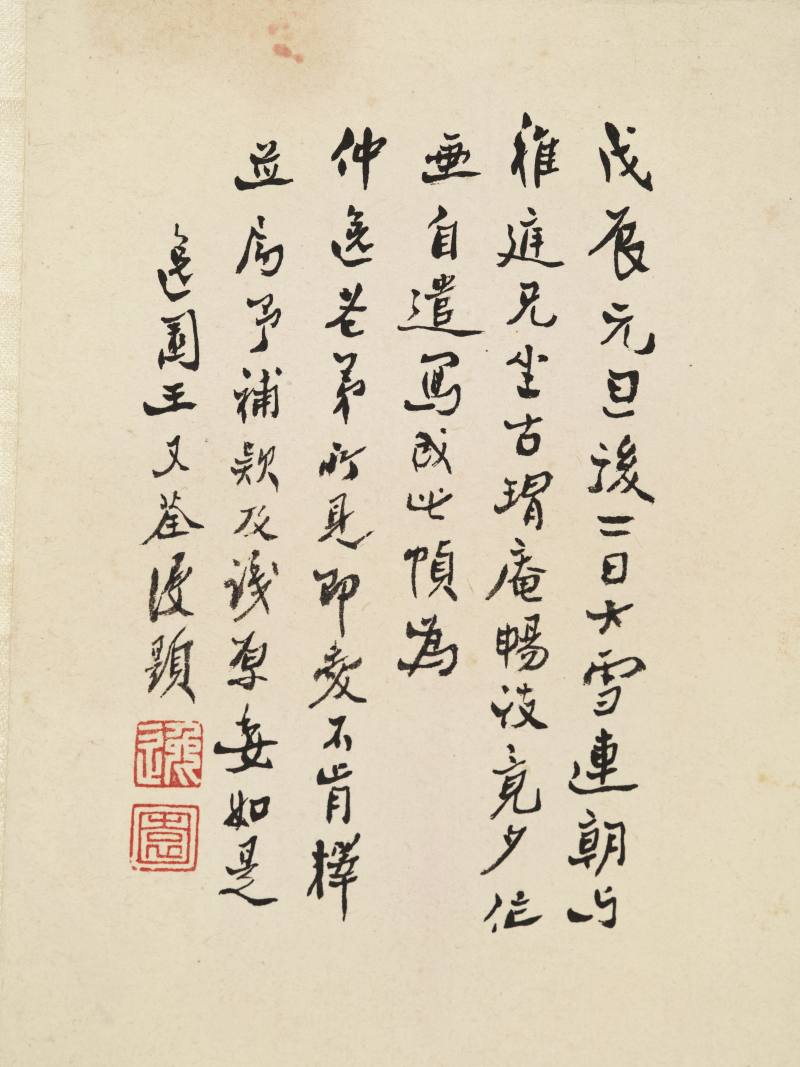 戊辰元旦後二日大雪連朝与
稚庭兄坐古瑁庵暢談竟夕作
畫自遣寫成此幀為
仲逸老弟所見即愛不肯擇
並屬予補款及識原委如是
逸園王又荃漫題
逸
園